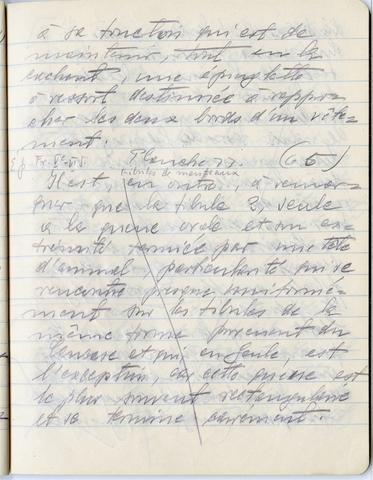 à sa fonction qui est de
maintenir, tout en la
cachant, une épinglette
à ressort destinée à rappro-
cher les deux bords d'un vête-
ment.
Planche 77. (65)
fibules de manteaux
Il est, en outre, à remar-
quer que la fibule 3, seule
a la queue ovale et son ex-
trémité formée par une tête
d'animal, particularité qui se
rencontre presque uniformé-
ment sur les fibules de la
même forme provenant du
Caucase et qui, en Gaule, est
l'exception, car cette queue est
le plus souvent rectangulaire
et se termine carrément.